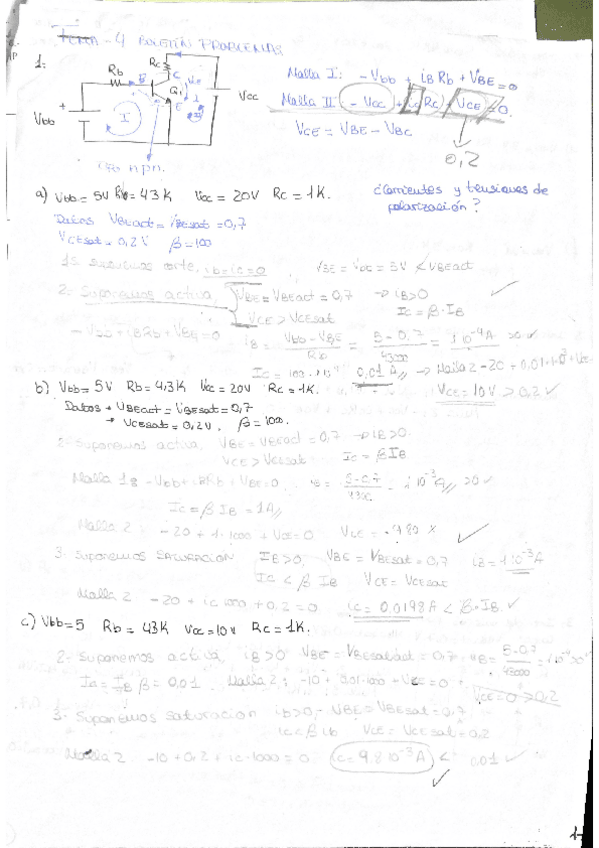 TEMA - 4 BOLETÍN PROBLEMAS
1:
Rb
Rc
B
C
E
Q1
Vcc
Vbb
I
II
Malla I: -Vbb + iB Rb + VBE = 0
Malla II: -Vcc + ic Rc + VCE = 0.
VCE = VBE - VBC
0,2
npn.
a) Vbb = 5V Rb = 43K Vcc = 20V Rc = 1K.
¿Corrientes y tensiones de polarización?
Datos VBEact = VBEsat = 0,7
VCEsat = 0,2V β = 100
1º Suponemos corte, ib = ic = 0 VBE = = 5V < VBEact
2- Suponemos activa, VBE = VBEact = 0,7 → iB>0
VCE > VCEsat Ic = β·IB
-Vbb + iB Rb + VBE = 0 iB = Vbb - VBE / Rb = 5 - 0,7 / 43000 = 1·10^-4 A >0 ✓
0,01 A // → Malla 2 - 20 +
VCE = 10V > 0,2 ✓
b) Vbb = 5V Rb = 4,3K Vcc = 20V Rc = 1K.
Datos → VBEact = VBEsat = 0,7
→ VCEsat = 0,2V, β = 100.
2- Suponemos activa, VBE = VBEact = 0,7 → iB>0.
VCE > VCEsat Ic = β IB
Malla 1: -Vbb + iB Rb + VBE = 0, iB = 10^-3 A // >0 ✓
Ic = β IB = 1A //
Malla 2: -20 + 1·1000 + VCE = 0 VCE = -980 X
3- Suponemos SATURACIÓN IB>0, VBE = VBEsat = 0,7 iB = 1·10^-3 A
Ic < β IB VCE = VCEsat
Malla 2 -20 + ic 1000 + 0,2 = 0 ic = 0,0198 A < β·IB. ✓
c) Vbb = 5 Rb = 43K Vcc = 10V Rc = 1K.
2- Suponemos activa, iB>0 VBE = = 0,7 iB = 5-0,7 / 43000
β = 0,01. Malla 2; -10 + 0,01·1000 + VCE = 0
VCE = 0 > 0,2
3- Suponemos saturación ib>0, VBE = VBEsat = 0,7
ic < β ib VCE = VCEsat = 0,2
Malla 2 -10 + 0,2 + ic·1000 = 0 ic = 9,8·10^-3 A < 0,01 ✓